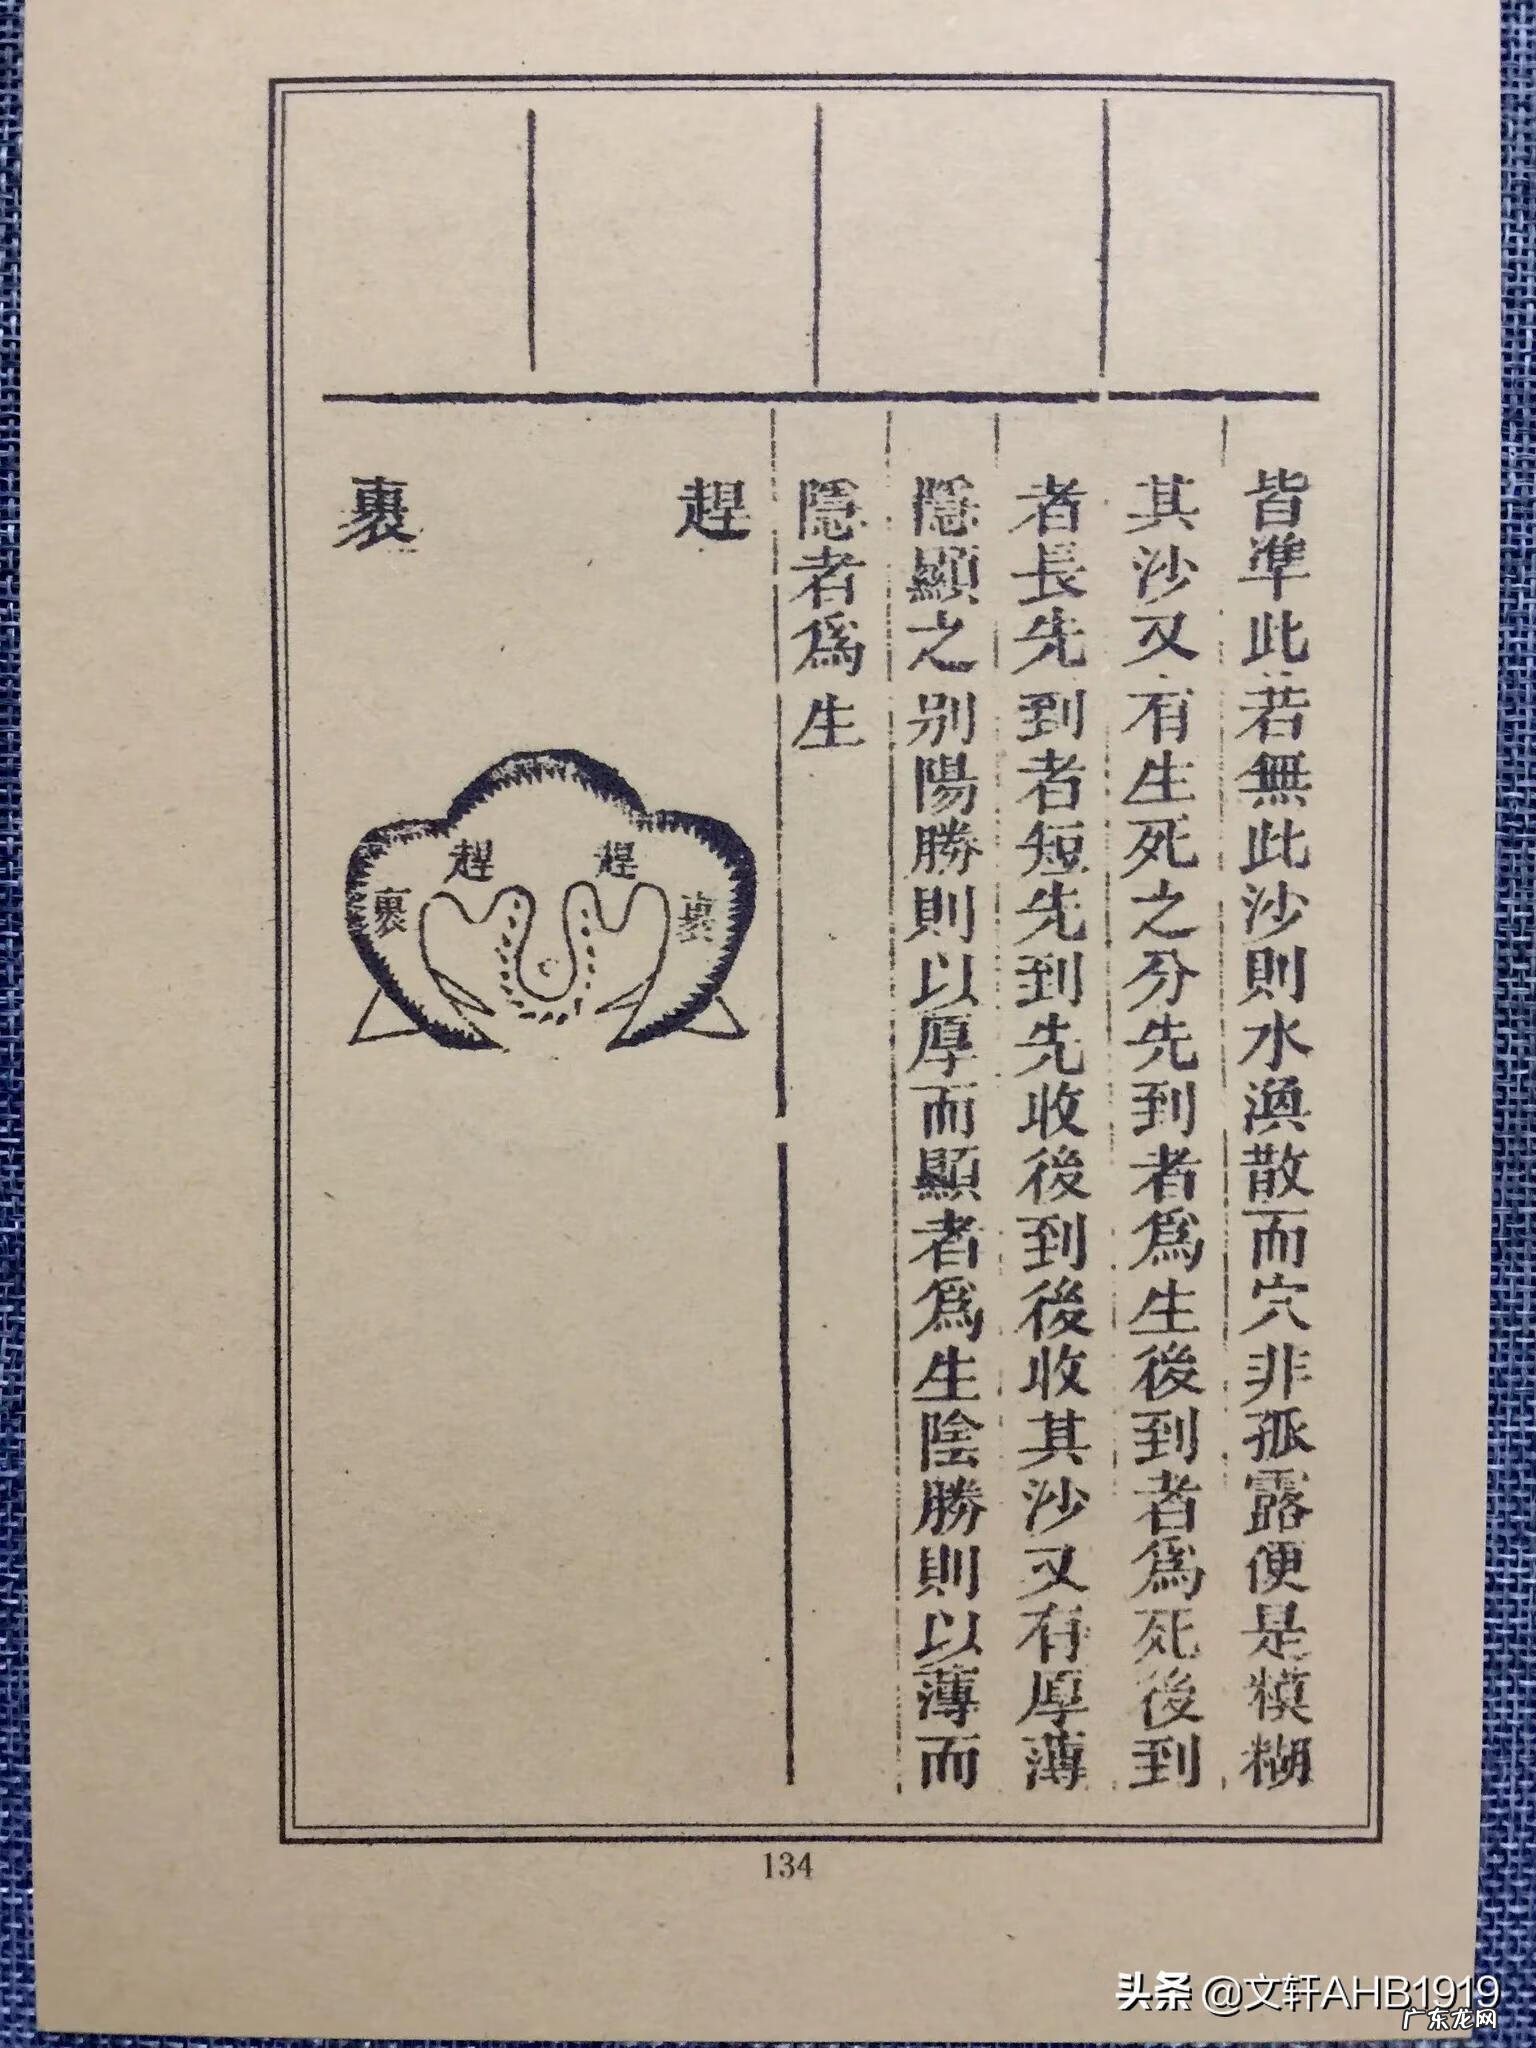 皆準此若無此沙則水渙散而穴非孤露便是糢糊
其沙又有生死之分先到者爲生後到者爲死後到
者長先到者短先到先收後到後收其沙又有厚薄
隱顯之别陽勝則以厚而顯者爲生陰勝則以薄而
隱者爲生
趕
裹
趕
趕
裹
裹
134
头条 @文轩AHB1919
广东龙网